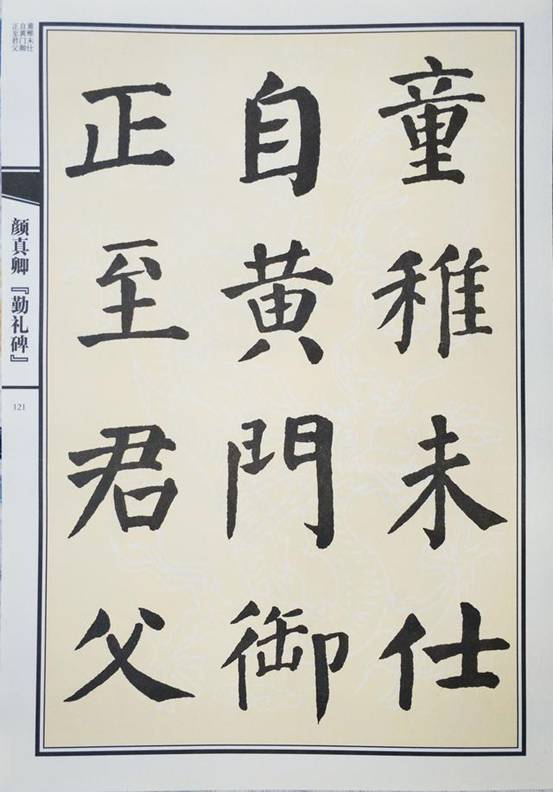 童稚未仕
自黄門御
正至君父
童稚未仕
自黄门御
正至君父
颜真卿『勤礼碑』
121